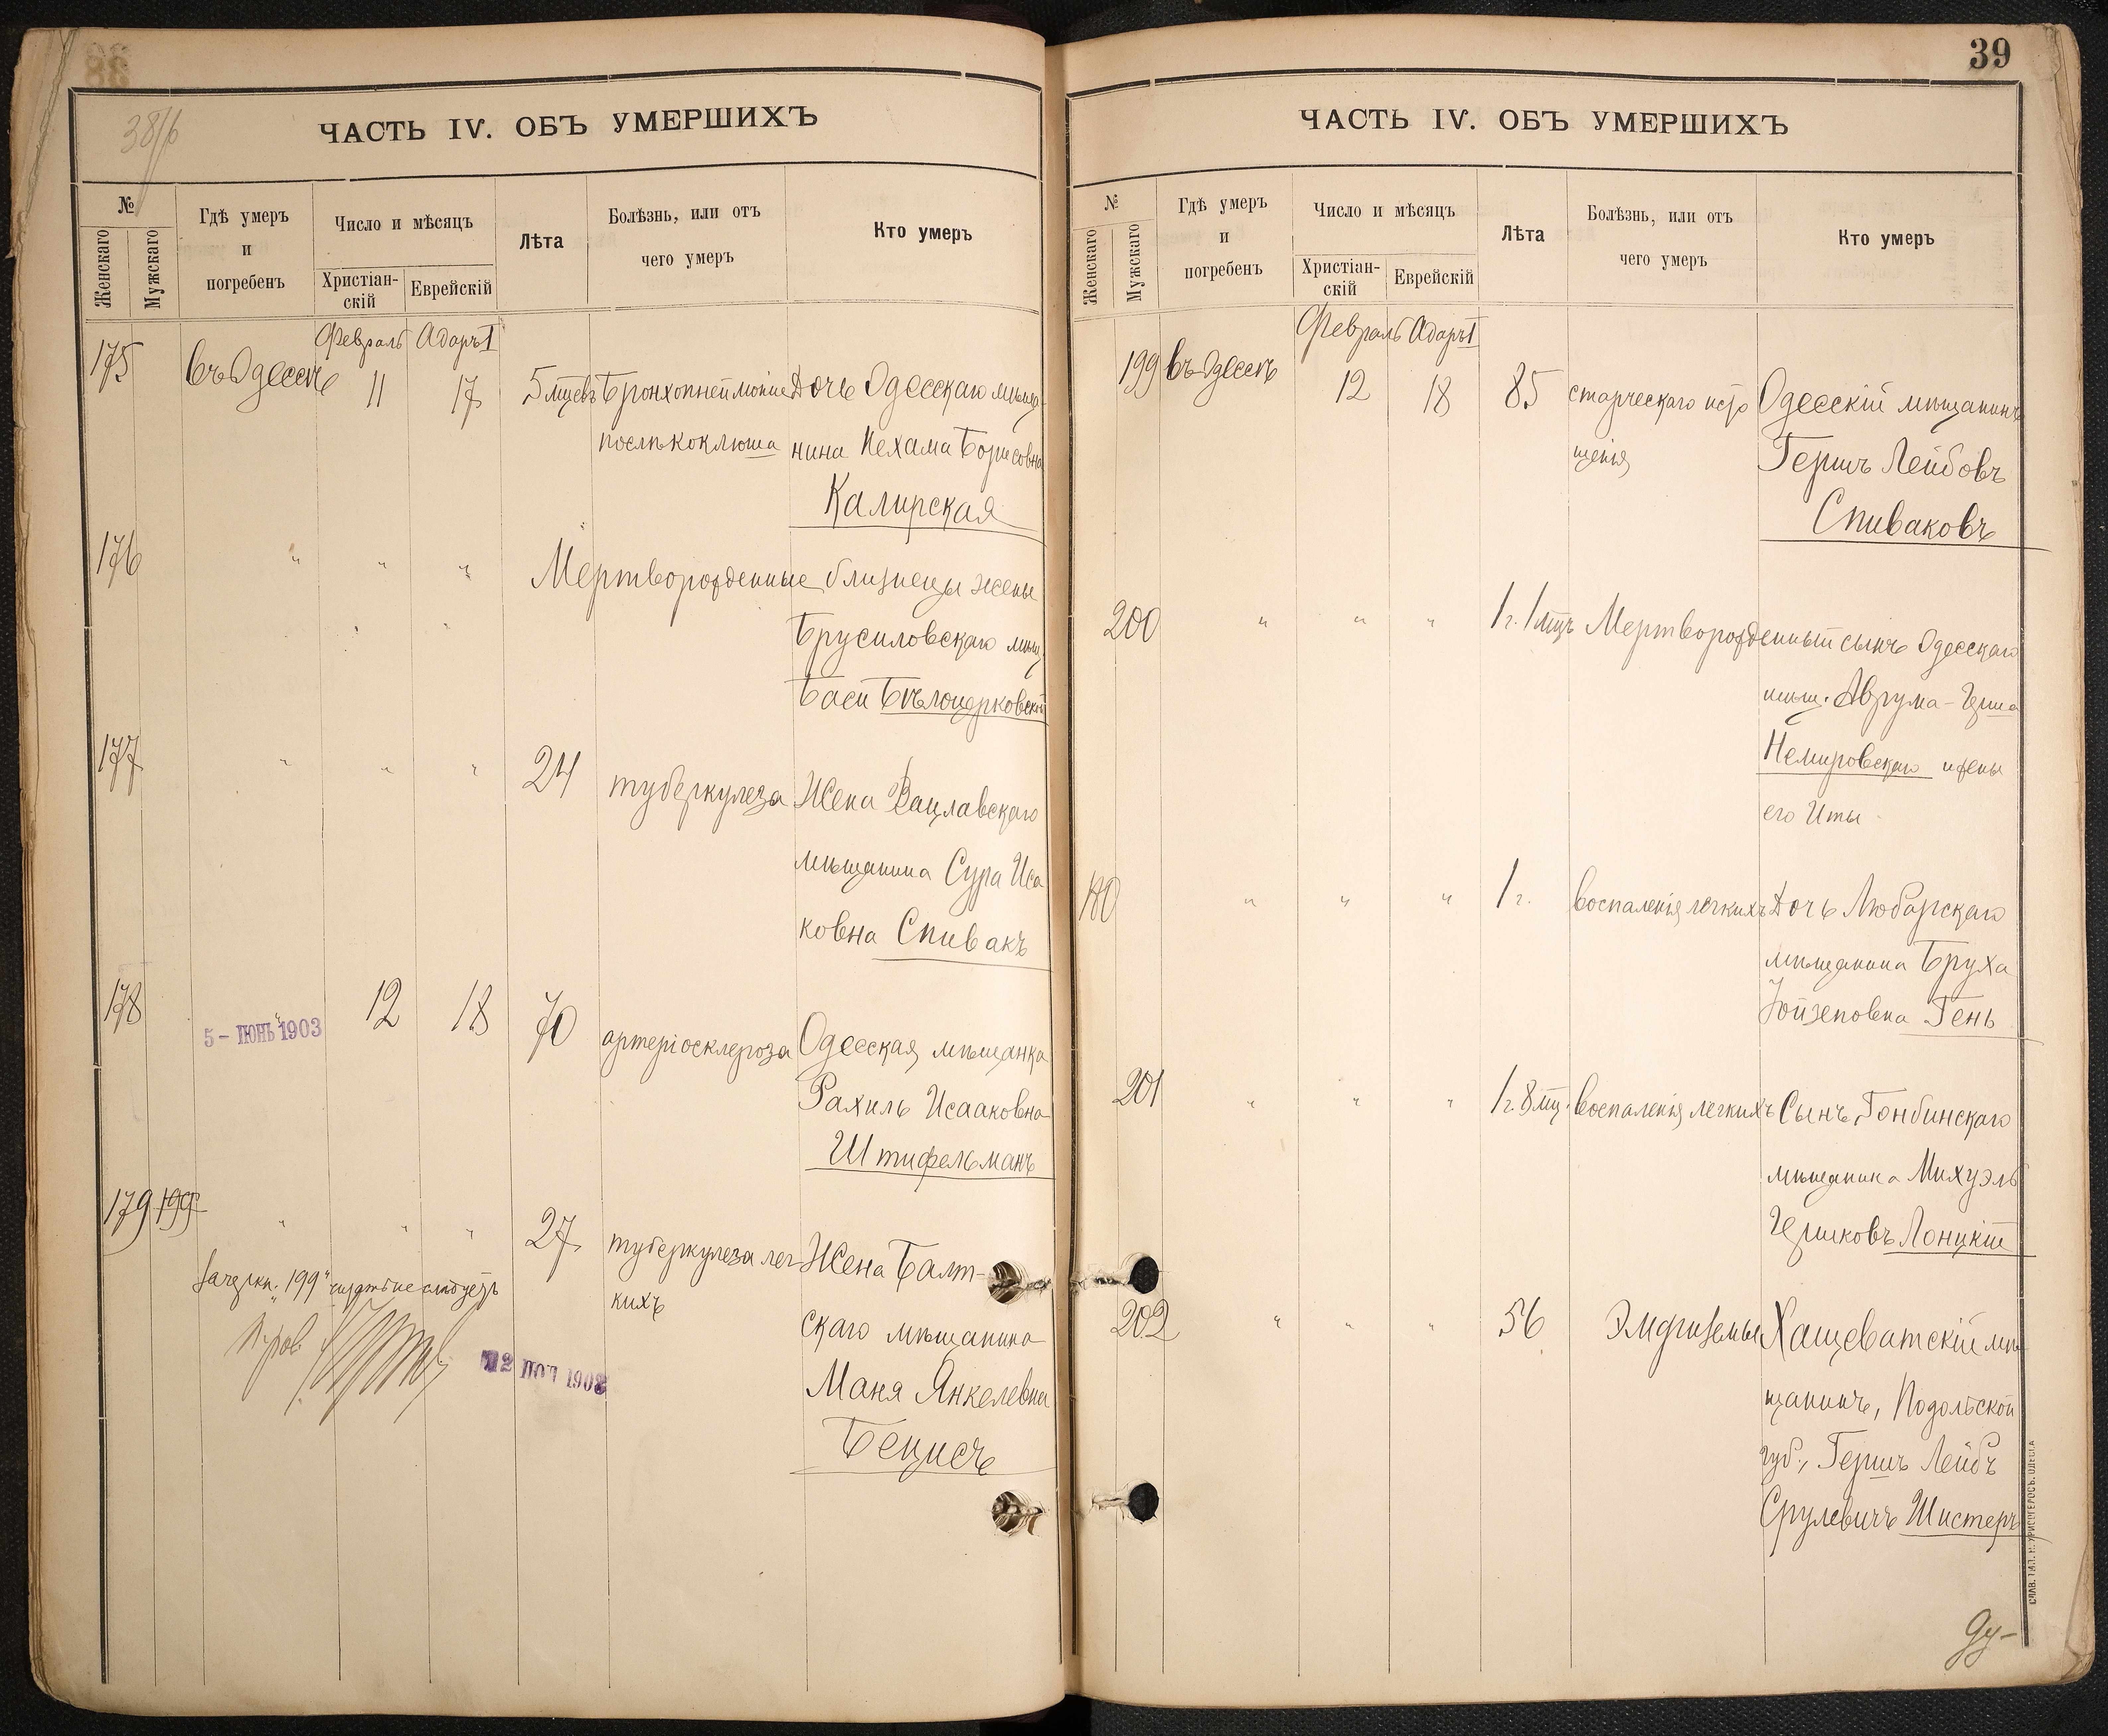 38
38/б
ЧАСТЬ IV. ОБЪ УМЕРШИХЪ
№
Женскаго
Мужскаго
Гдѣ умеръ
и
погребенъ
Число и мѣсяцъ
Христіан-
скій
Еврейскій
Лѣта
Болѣзнь, или отъ
чего умеръ
Кто умеръ
Февраль Адаръ I
175 въ Одессѣ 11 17 5 мцевъ Бронхопнеймоніи Дочь Одесскаго мѣща-
послѣ коклюша нина Нехама Борисовна
Калирская
176 " " " Мертворожденные близнецы жены
Брусиловскаго мѣщ.
Баси Бѣлоцерковской
177 " " " 24 туберкулеза Жена Вацлавскаго
мѣщанина Сура Иса
ковна Спивакъ
178 " 12 18 70 артеріосклероза Одесская мѣщанка
5 - ІЮНЬ 1903
Рахиль Исааковна
Штифельманъ
179 199 " " " 27 туберкулеза лег Жена Балт-
кихъ
Зачеркн. "199" читать не слѣдуетъ
скаго мѣщанина
12 1903
Маня Янкелевна
Бецисъ
39
ЧАСТЬ IV. ОБЪ УМЕРШИХЪ
№
Женскаго
Мужскаго
Гдѣ умеръ
и
погребенъ
Число и мѣсяцъ
Христіан-
скій
Еврейскій
Лѣта
Болѣзнь, или отъ
чего умеръ
Кто умеръ
Февраль Адаръ I
199 въ Одессѣ 12 18 85 старческаго исто Одесскій мѣщанинъ
щенія Гершъ Лейбовъ
Спиваковъ
200 " " " 1 г. 1 мцъ Мертворожденный сынъ Одесскаго
мѣщ. Аврума-Герша
Немировскаго и жены
его Иты
180 " " " 1 г. воспаленія легкихъ Дочь Любарскаго
мѣщанина Бруха
Гень
201 " " " 1 г. 8 мц. воспаленія легкихъ Сынъ Гонбинскаго
мѣщанина Михуэль
Гершковъ Лонцкій
202 " " " 56 Эмфиземы Хащеватскій мѣ
щанинъ, Подольской
губ., Гершъ Лейбъ
Срулевичъ Шистеръ
СЛАВ. ТИП. Н. ХРИСОГЕЛОСЪ. ОДЕССА